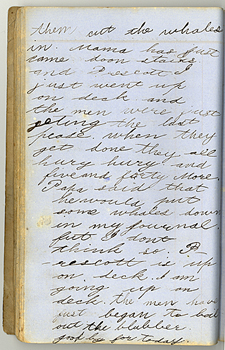 them cut the whales
in. Mama has just
came doon stairs
and Prescott I
just went up
on deck and
the men were just
geting the last
peace, when they
get done they all
hury hury and
five and forty more.
Papa said that
he would put
some whales down
in my journal.
but I dont
think so. P-
rescott is up
on deck. I am
going up on
deck. the men have
just began to boil
out the blubber.
good by for today.